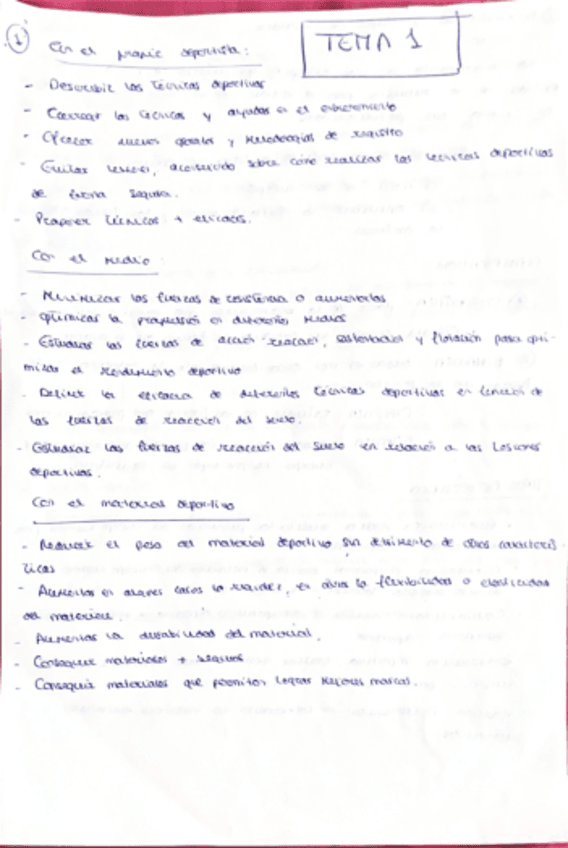 1
TEMA 1
Con el propio deportista:
- Describir las técnicas deportivas
- Corregir las técnicas y ayudas en el entrenamiento
- Ofrecer nuevos aparatos y metodologías de registro
- Evitar lesiones, aconsejando sobre cómo realizar las técnicas deportivas
de forma segura.
- Proponer técnicas + eficaces.
Con el medio:
- Minimizar las fuerzas de resistencia o aumentarlas
- optimizar la propulsión en diferentes medios
- Estudiar las fuerzas de acción reacción, sustentación y flotación para opti-
mizar el rendimiento deportivo
- Definir la eficacia de diferentes técnicas deportivas en función de
las fuerzas de reacción del suelo.
- Estudiar las fuerzas de reacción del suelo en relación a las lesiones
deportivas.
Con el material deportivo
- Reducir el peso del material deportivo sin detrimento de otras caracterís-
ticas
- Aumentar en algunos casos la rigidez, en otros la flexibilidad o elasticidad
del material.
- Aumentar la durabilidad del material.
- Conseguir materiales + seguros
- Conseguir materiales que permitan lograr mejores marcas.